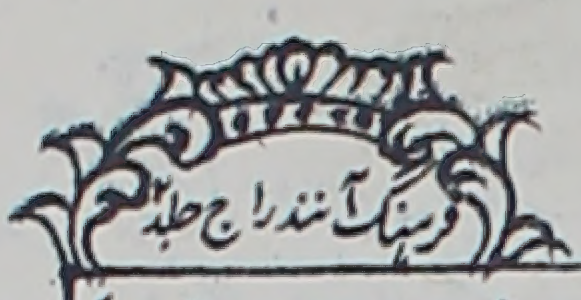 فرہنگ آنندراج جلد۲